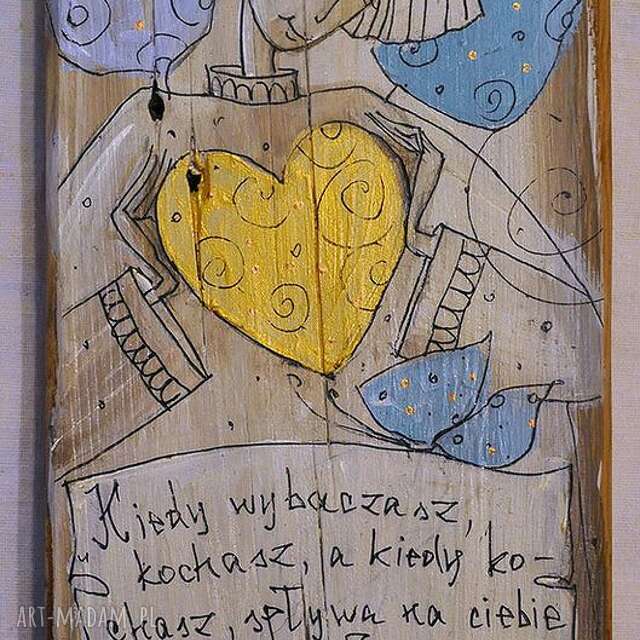 Kiedy wybaczasz,
kochasz, a kiedy ko-
chasz, spływa na ciebie
ART-MADAM.PL